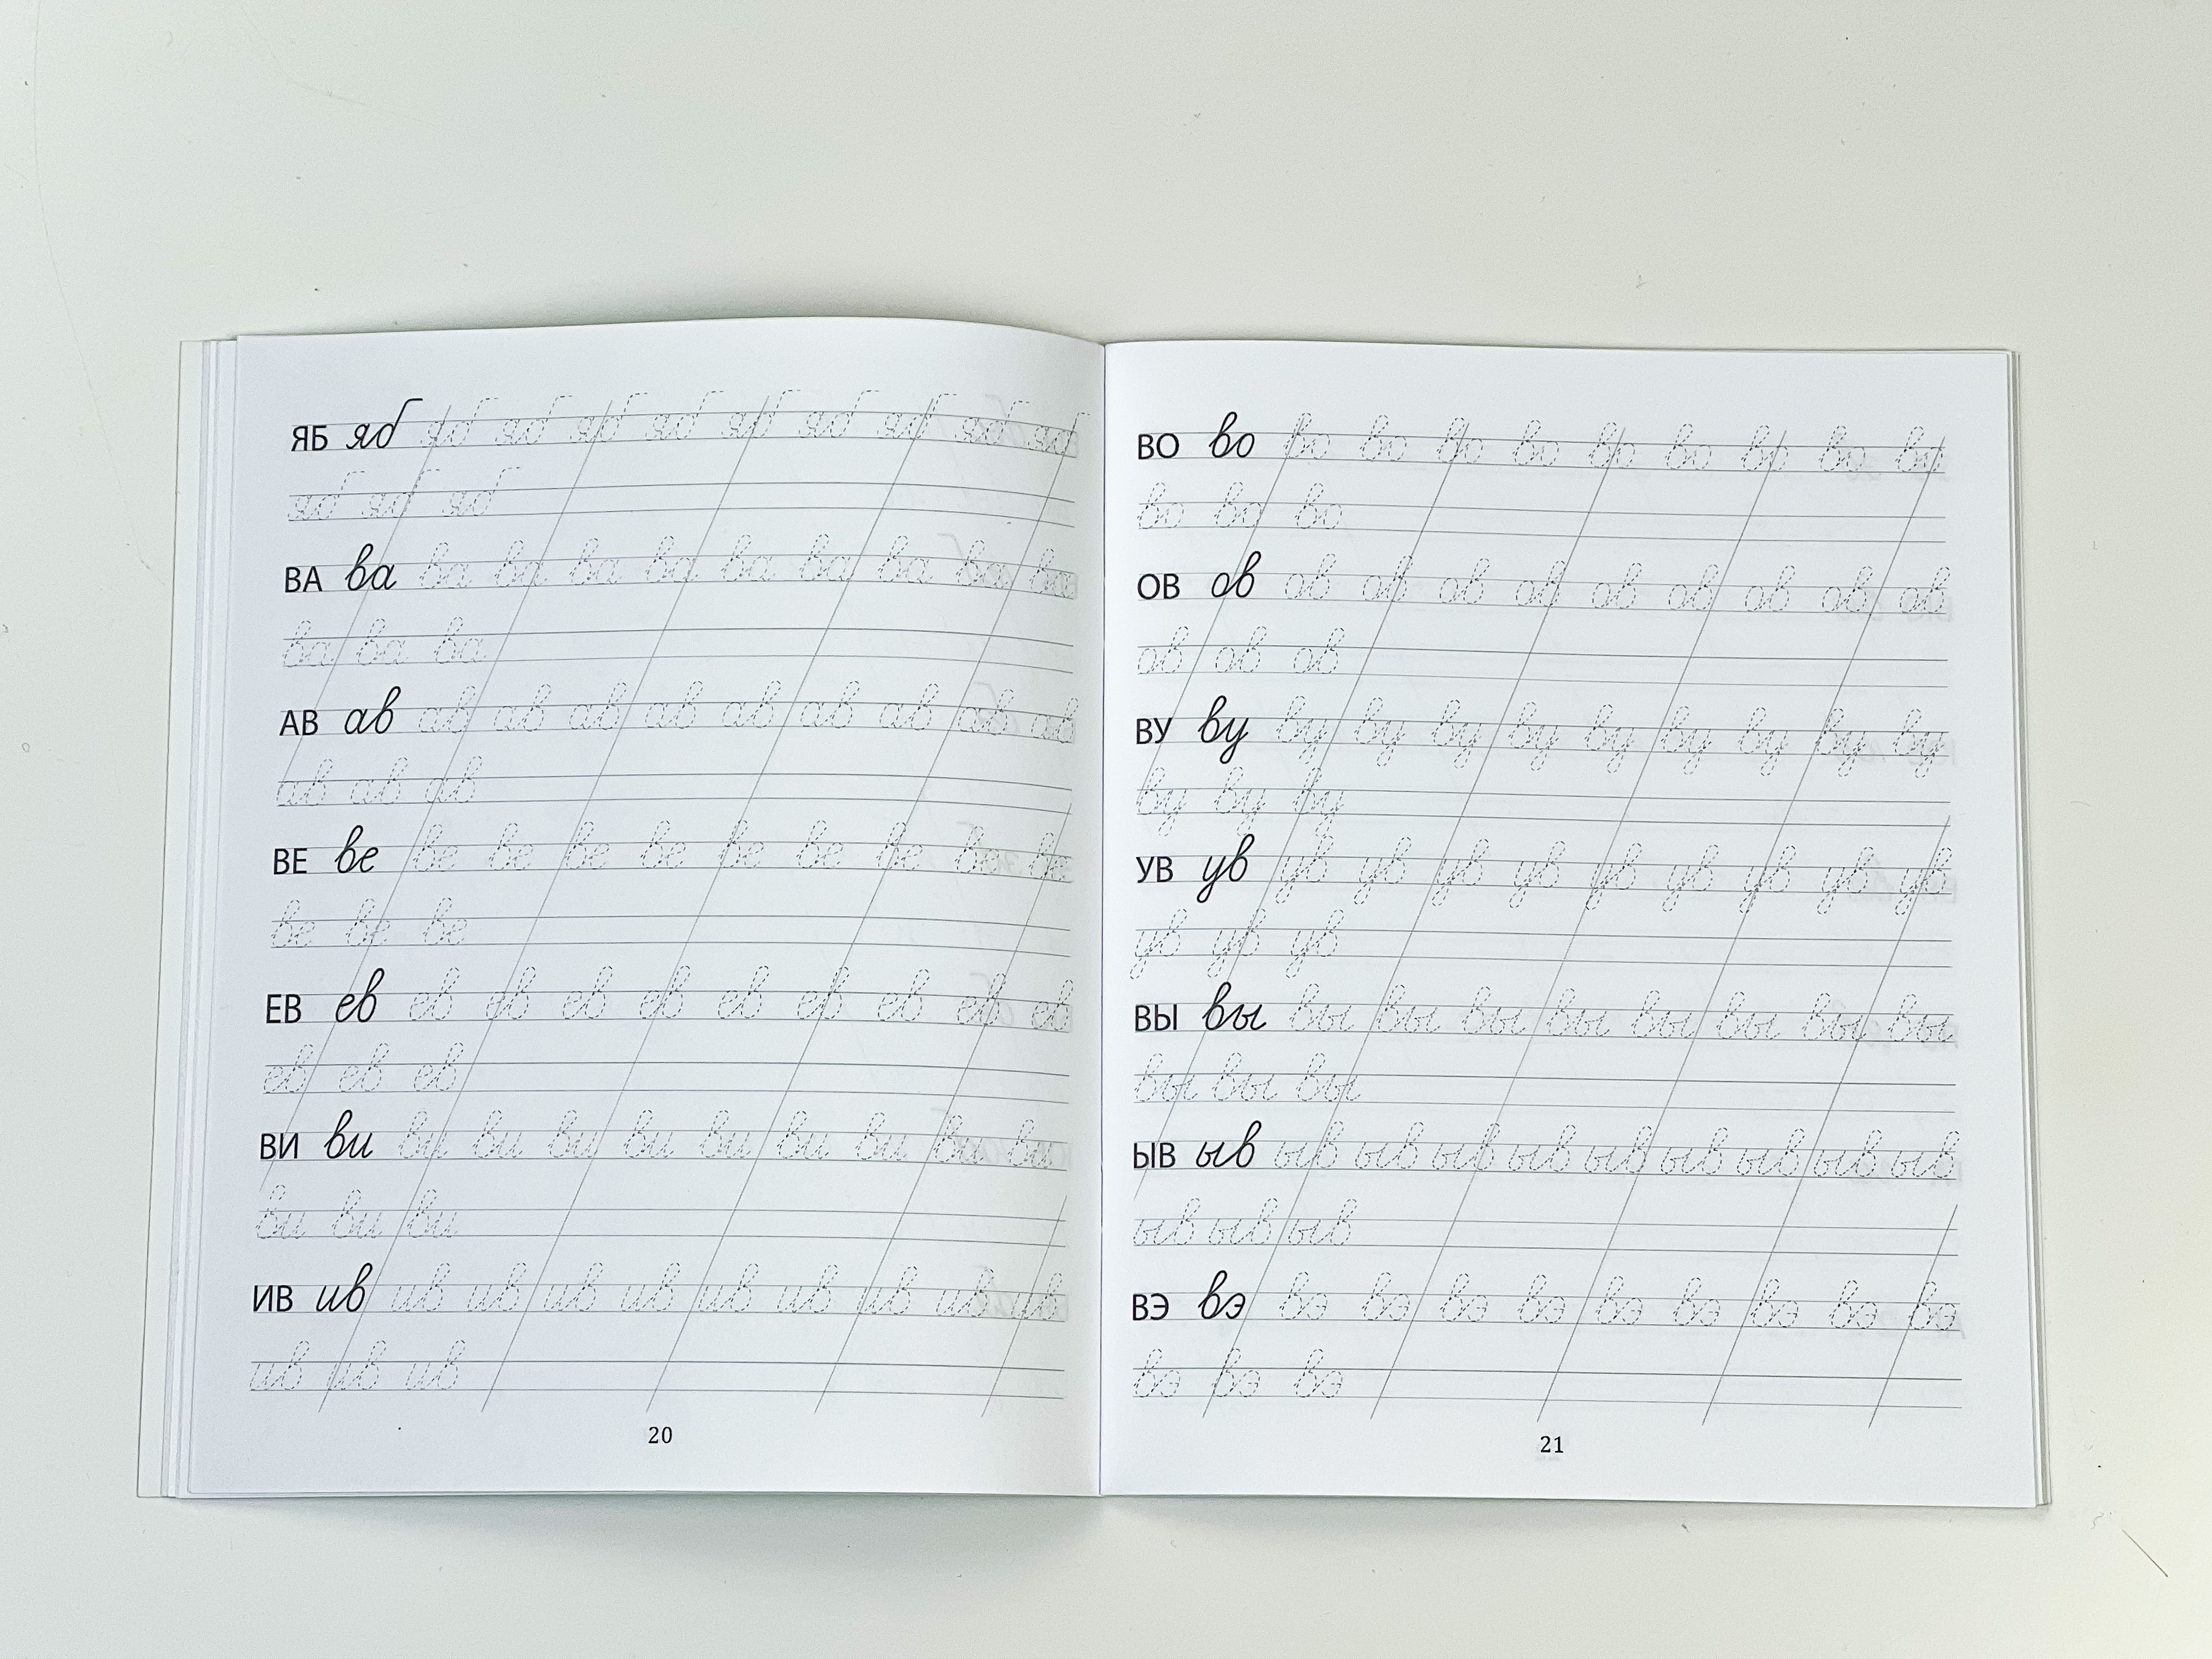 ЯБ яб яб яб яб яб яб яб яб яб яб
яб яб яб
ВА ва ва ва ва ва ва ва ва ва ва
ва ва ва
АВ ав ав ав ав ав ав ав ав ав ав
ав ав ав
ВЕ ве ве ве ве ве ве ве ве ве ве
ве ве ве
ЕВ ев ев ев ев ев ев ев ев ев ев
ев ев ев
ВИ ви ви ви ви ви ви ви ви ви ви
ви ви ви
ИВ ив ив ив ив ив ив ив ив ив ив
ив ив ив
20
ВО во во во во во во во во во во
во во во
ОВ ов ов ов ов ов ов ов ов ов ов
ов ов ов
ВУ ву ву ву ву ву ву ву ву ву ву
ву ву ву
УВ ув ув ув ув ув ув ув ув ув ув
ув ув ув
ВЫ вы вы вы вы вы вы вы вы вы
вы вы вы
ЫВ ыв ыв ыв ыв ыв ыв ыв ыв ыв ыв
ыв ыв ыв
ВЭ вэ вэ вэ вэ вэ вэ вэ вэ вэ вэ
вэ вэ вэ
21